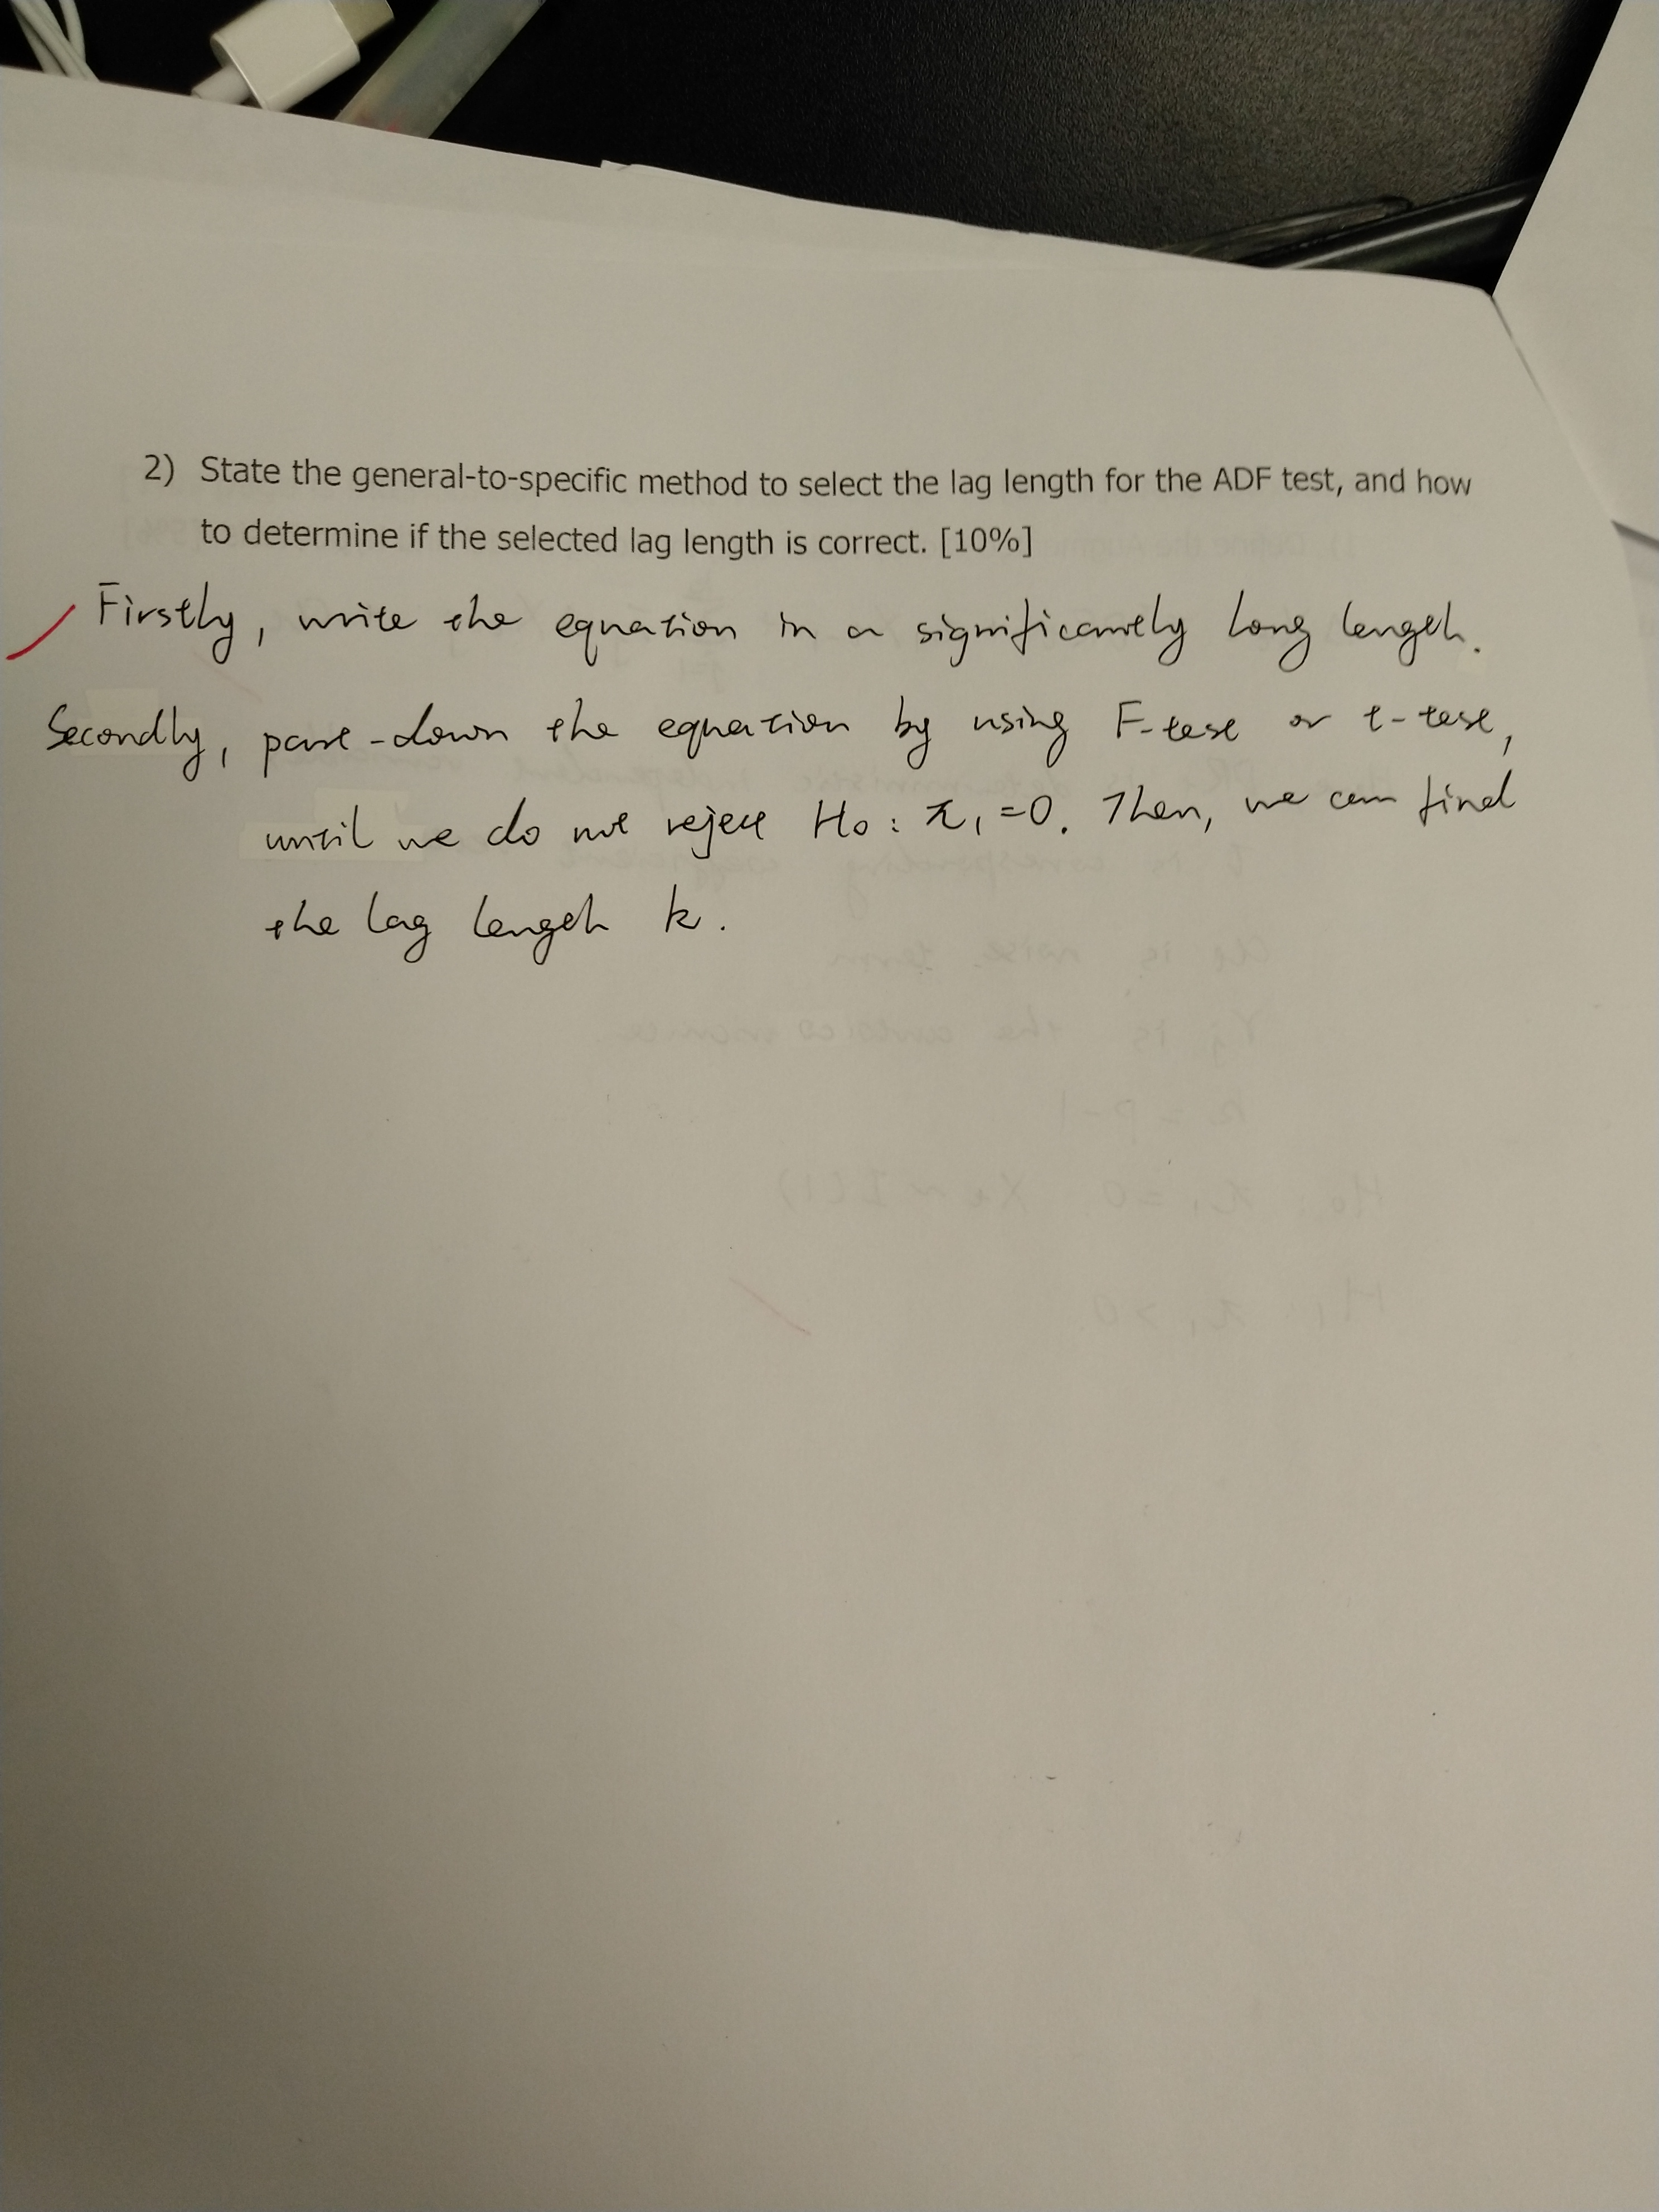 2) State the general-to-specific method to select the lag length for the ADF test, and how
to determine if the selected lag length is correct. [10%]
Firstly, write the equation in a significantly long length.
Secondly, pare-down the equation by using F-test or t-test,
until we do not reject H₀: π₁=0. Then, we can find
the lag length k.